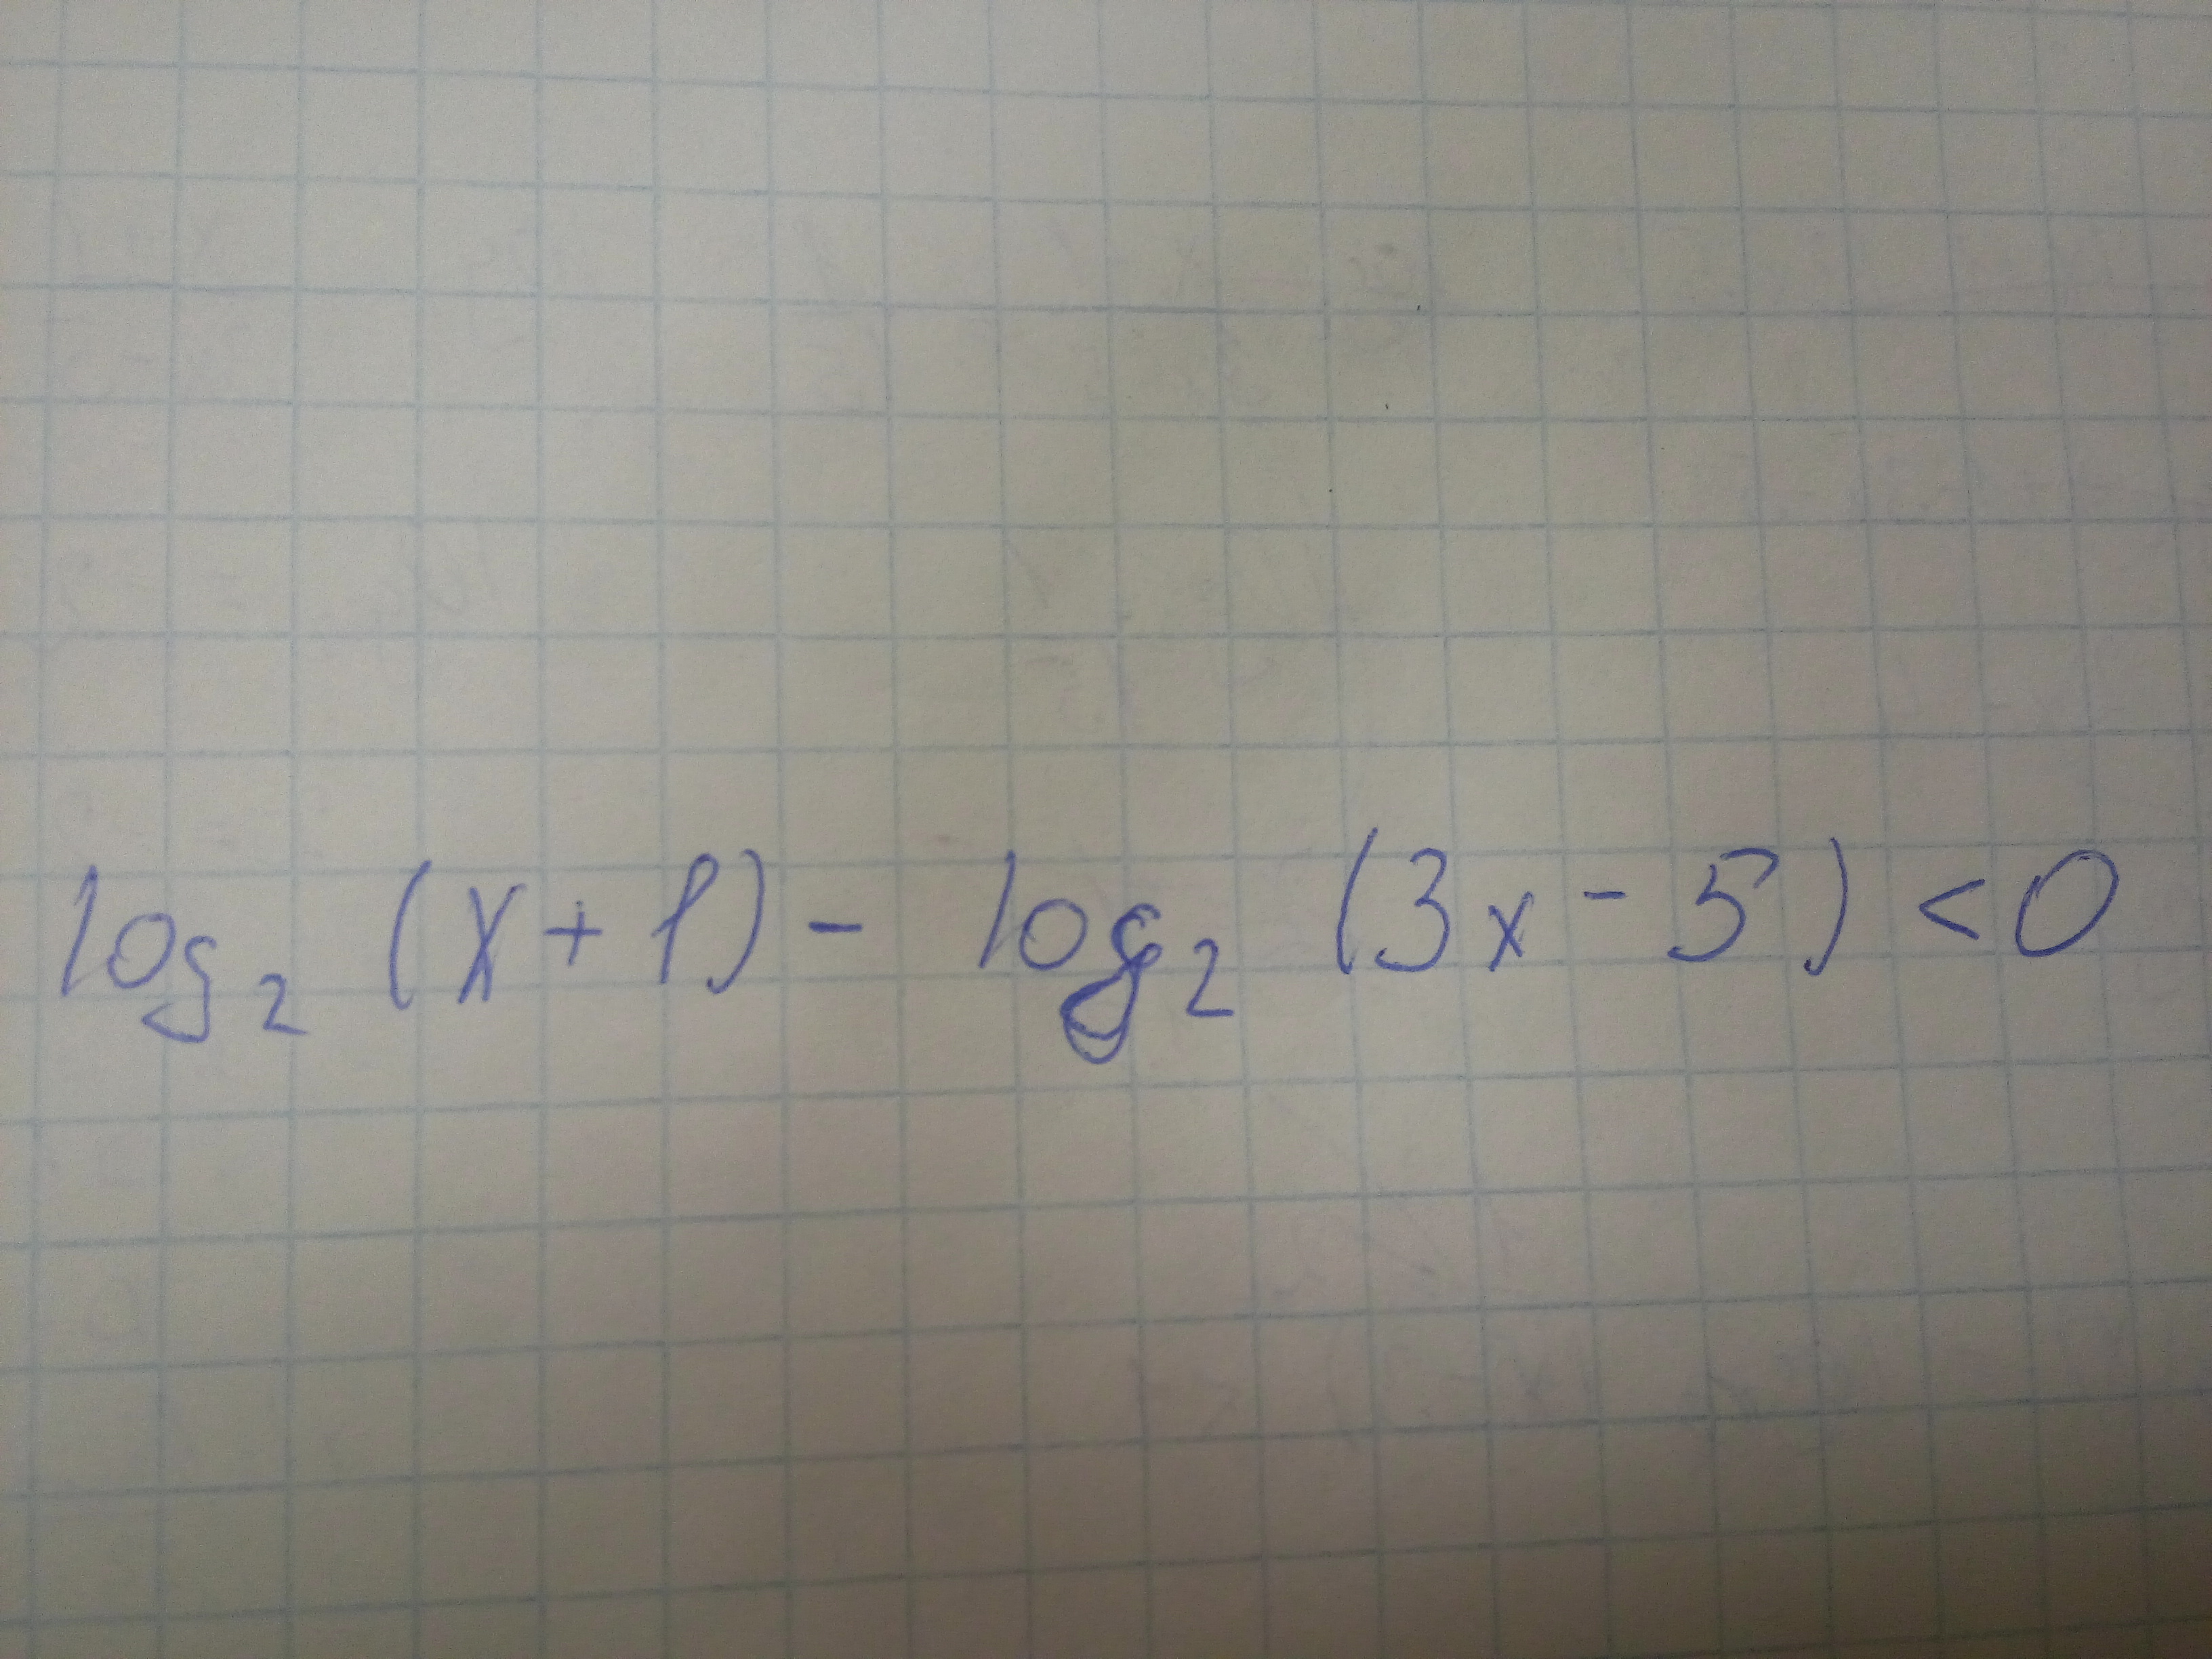 log₂ (x + 1) - log₂ (3x - 5) < 0